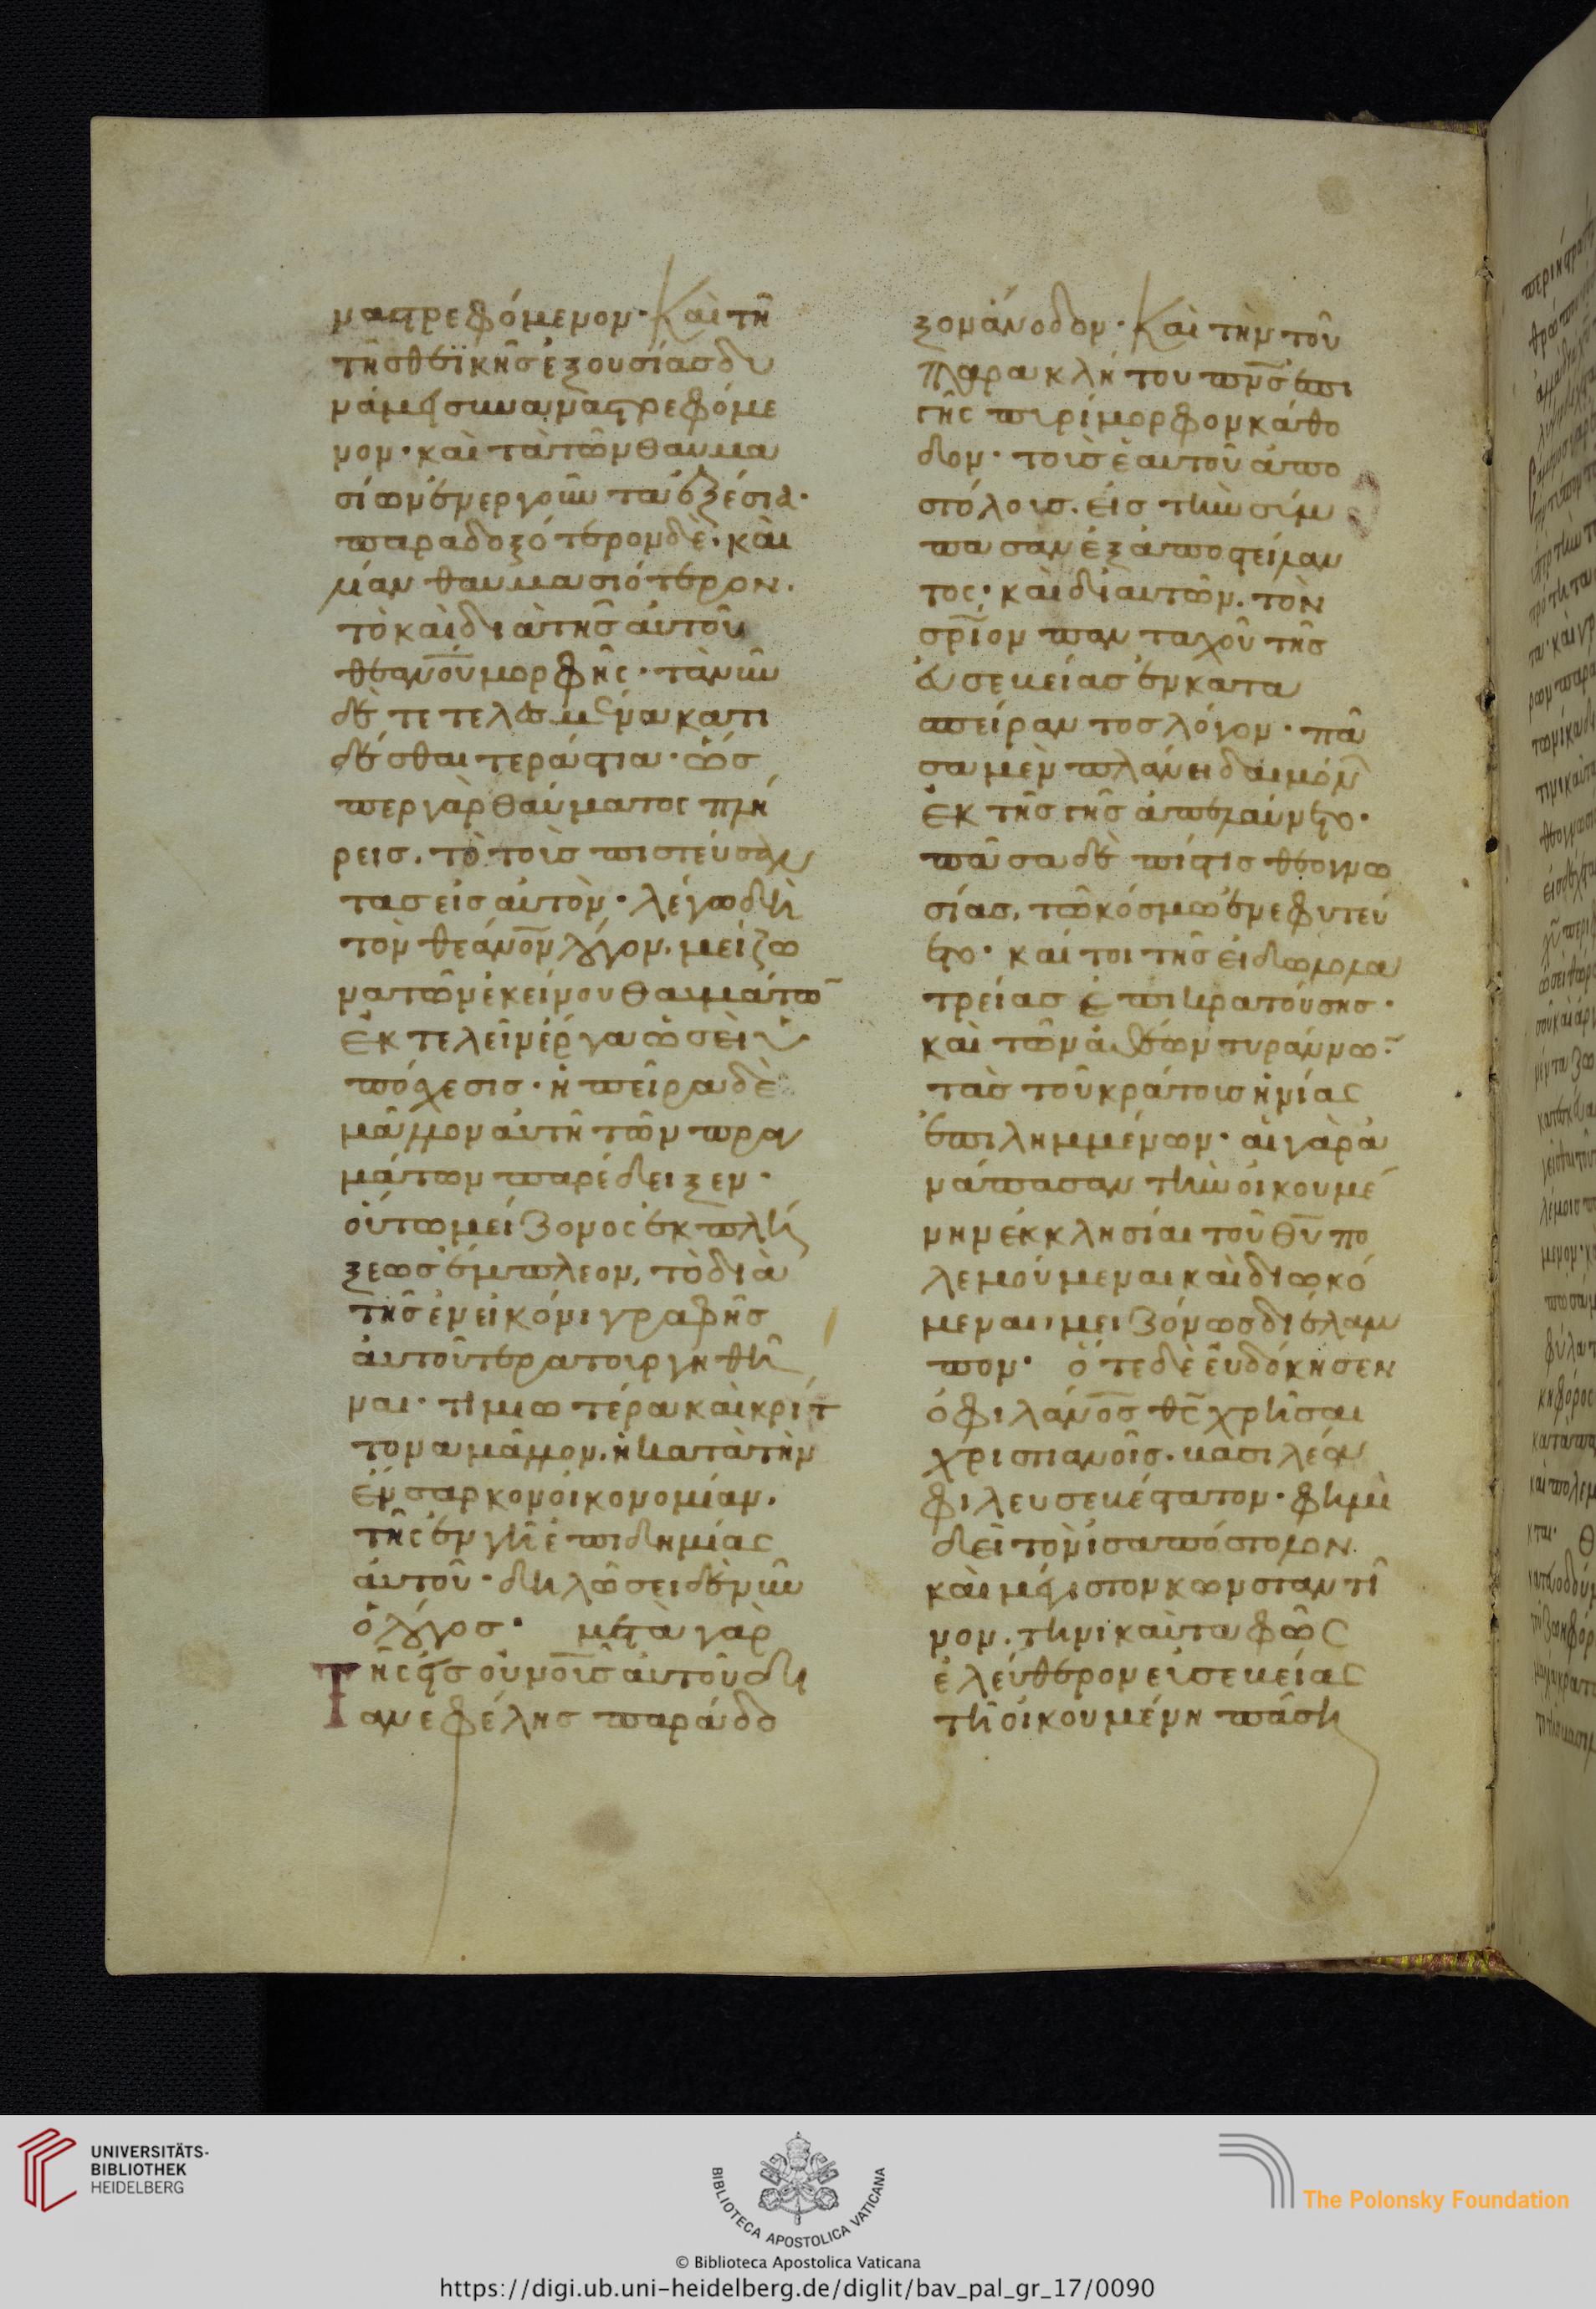 ναστρεφόμενον· Καὶ τῆ
τῆσ θεϊκῆσ ἐξουσίασ δυ
νάμει συναναστρεφόμε
νον· καὶ τὰ τῶν θαυμα
σίων ἐνεργοῦντα ἐξέσια·
παραδοξότερον δὲ· καὶ
λίαν θαυμασιότερον.
τὸ καὶ διὰ τῆσ αὐτοῦ
θεανου μορφῆς· τὰ νῦν
δὲ τετελεσμένα κατι
δέσθαι τεράστια· ὥσ
περ γὰρ θαύματος πλή
ρεισ. τὸ τοὺσ πιστεύσαν
τασ εἰσ αὐτὸν· λέγω δὴ
τὸν θεάνον λόγον. μείζω
να τῶν ἐκείνου θαυμάτω
ἐκτελεῖν ἔργα ὡσεὶ ὑ
πόσχεσισ· ἡ πεῖρα δὲ
μᾶλλον αὐτὴ τῶν πρα
μάτων παρέδειξεν·
οὕτω μείζονος ἐκπλή
ξεωσ ἔμπλεον, τὸ διὰ
τῆσ ἐν εἰκόνι γραφῆσ
αὐτοῦ τερατουργηθῆ
ναι· τιμιωτέρα καὶ κρίτ
τονα μᾶλλον. ἢ κατὰ τὴν
ἔνσαρκον οἰκονομίαν.
τῆς ἐν γῆ ἐπιδημίας
αὐτοῦ· δηλώσει δὲ νῦν
ὁ λόγοσ· μετὰ γὰρ
Τῆς εἰσ οὐνοὺσ αὐτοῦ δι
ανεφέλησ παράδο
ξον ἄνοδον· Καὶ τὴν τοῦ
παρακλήτου πνσ ἐπι
γῆς πυρίμορφον κάθο
δον· τοὺσ ἑαυτοῦ ἀπο
στόλουσ. εἰσ τὴν σύμ
πασαν ἐξαποστείλαν
τος· καὶ δι αυτῶν. τὸν
σριον πανταχοῦ τῆσ
εὐσεβείασ ἐνκατα
σπείραντοσ λόγον· πᾶ
σα μὲν πλάνη δαιμόν
ἐκ τῆσ γῆσ ἀπελαύνετο·
πᾶσα δὲ πίστισ θεογνω
σίασ, τῶ κόσμω ἐνεφυτεύ
ετο· καίτοι τῆσ εἰδωλολα
τρείασ ἐπικρατούσησ·
καὶ τῶν ἀθέων τυράννω
τὰσ τοῦ κράτουσ ἡνίας
ἐπιλημμένων· αἱ γὰρ ἀ
νάπασαν τὴν οἰκουμέ
νην ἐκκλησίαι τοῦ θυ πο
λεμούμεναι καὶ διωκό
μεναι, μειζόνωσ διέλαμ
πον· ὅτε δὲ εὐδόκησεν
ὁ φιλάνοσ θς χρῆσαι
χριστιανοῖσ. βασιλέαν
φιλευσεβέστατον· φημὶ
δεῖ τὸν ἰσαπόστολον.
καὶ μέγιστον κωνσταντῖ
νον. τηνικαῦτα φῶς
ἐλεύθερον εὐσεβείας
τῆ οἰκουμένη πάση
UNIVERSITÄTS-
BIBLIOTHEK
HEIDELBERG
BIBLIOTECA APOSTOLICA VATICANA
© Biblioteca Apostolica Vaticana
The Polonsky Foundation
https://digi.ub.uni-heidelberg.de/diglit/bav_pal_gr_17/0090